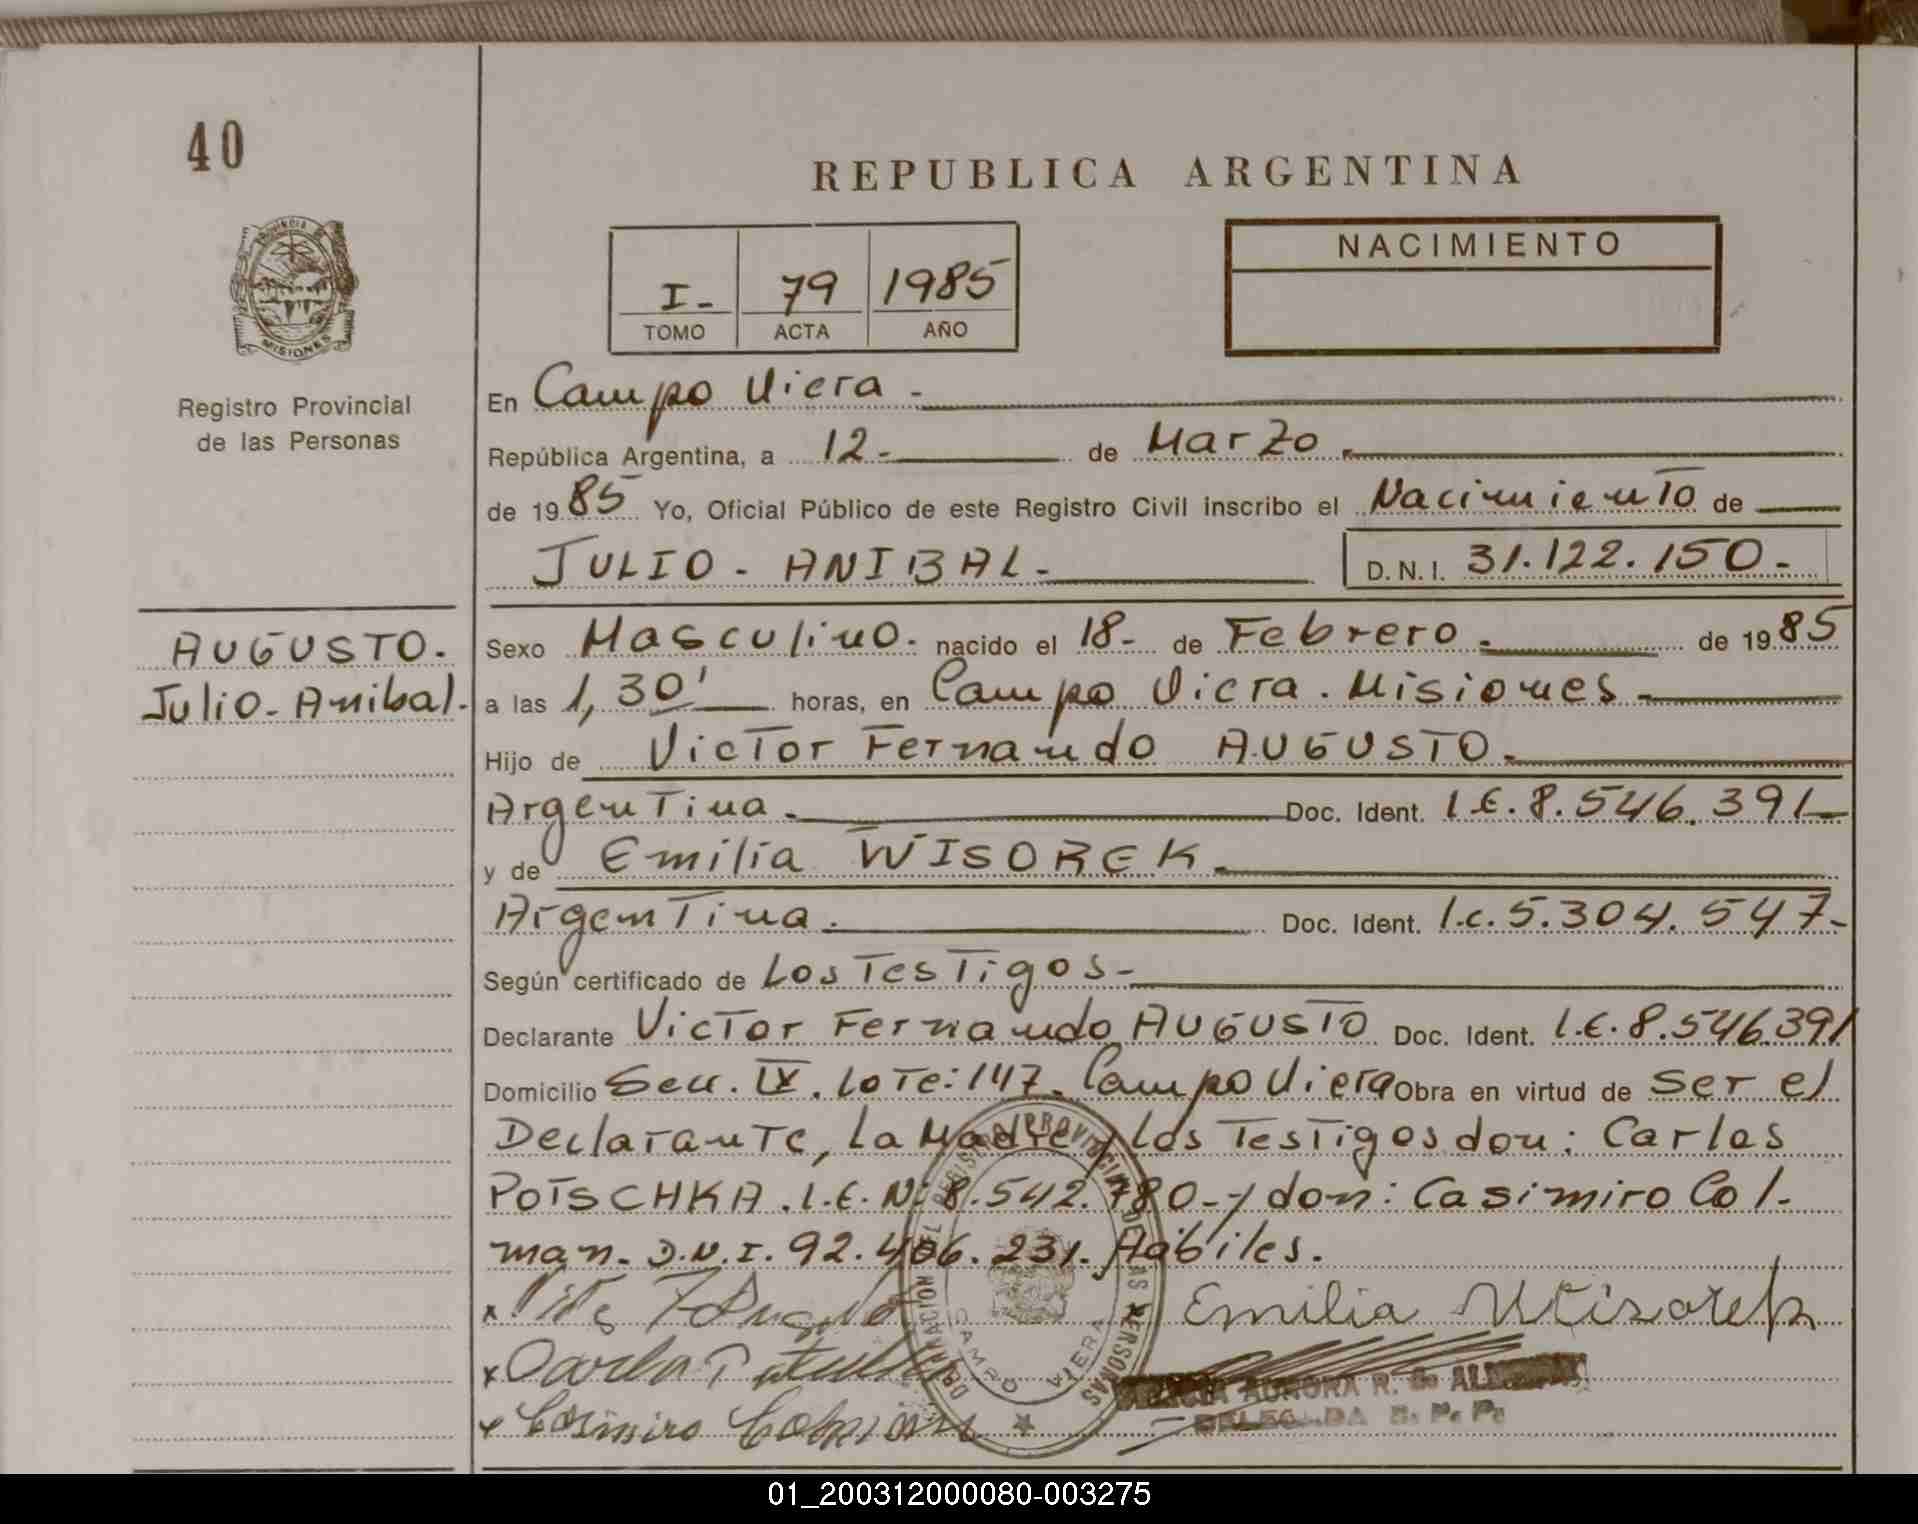 40
REPUBLICA ARGENTINA
Provincia de
MISIONES
Registro Provincial
de las Personas
I- 79 1985
TOMO ACTA AÑO
NACIMIENTO
En Campo Viera -
República Argentina, a 12- de Marzo
de 1985 Yo, Oficial Público de este Registro Civil inscribo el Nacimiento de
JULIO - ANIBAL - D.N.I. 31.122.150-
AUGUSTO.
Julio-Anibal.
Sexo Masculino. nacido el 18- de Febrero. de 1985
a las 1,30' horas, en Campo Viera. Misiones-
Hijo de Victor Fernando AUGUSTO.
Argentina. Doc. Ident. l.E.8.546.391-
y de Emilia WISOREK.
Argentina. Doc. Ident. l.c.5.304.547-
Según certificado de Los Testigos-
Declarante Victor Fernando AUGUSTO Doc. Ident. l.E.8.546.391
Domicilio Secc. IX. Lote:147- Campo Viera Obra en virtud de ser el
Declarante, La Madre y los Testigos don: Carlos
POTSCHKA.l.E.Nº8.542.780-y don: Casimiro Col-
man-D.N.I.92.406.231. Hábiles.
Emilia
Casimiro Colman
DELEGACION DEL REGISTRO PROVINCIAL DE LAS PERSONAS
CAMPO VIERA
AURORA R. G.
DELEGADA R. P. P.
01_200312000080-003275